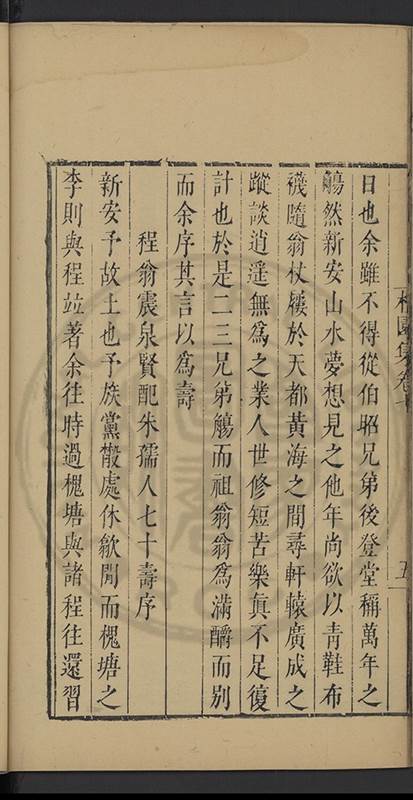 日也余雖不得從伯昭兄弟後登堂稱萬年之
觴然新安山水夢想見之他年尚欲以青鞋布
襪隨翁杖屨於天都黃海之間尋軒轅廣成之
蹤談逍遥無爲之業人世修短苦樂眞不足復
計也於是二三兄弟觴而祖翁翁爲滿酹而别
而余序其言以爲壽
程翁震泉賢配朱孺人七十壽序
新安予故土也予族黨散處休歙閒而槐塘之
李則與程竝著余往時過槐塘與諸程往還習
園集卷
五